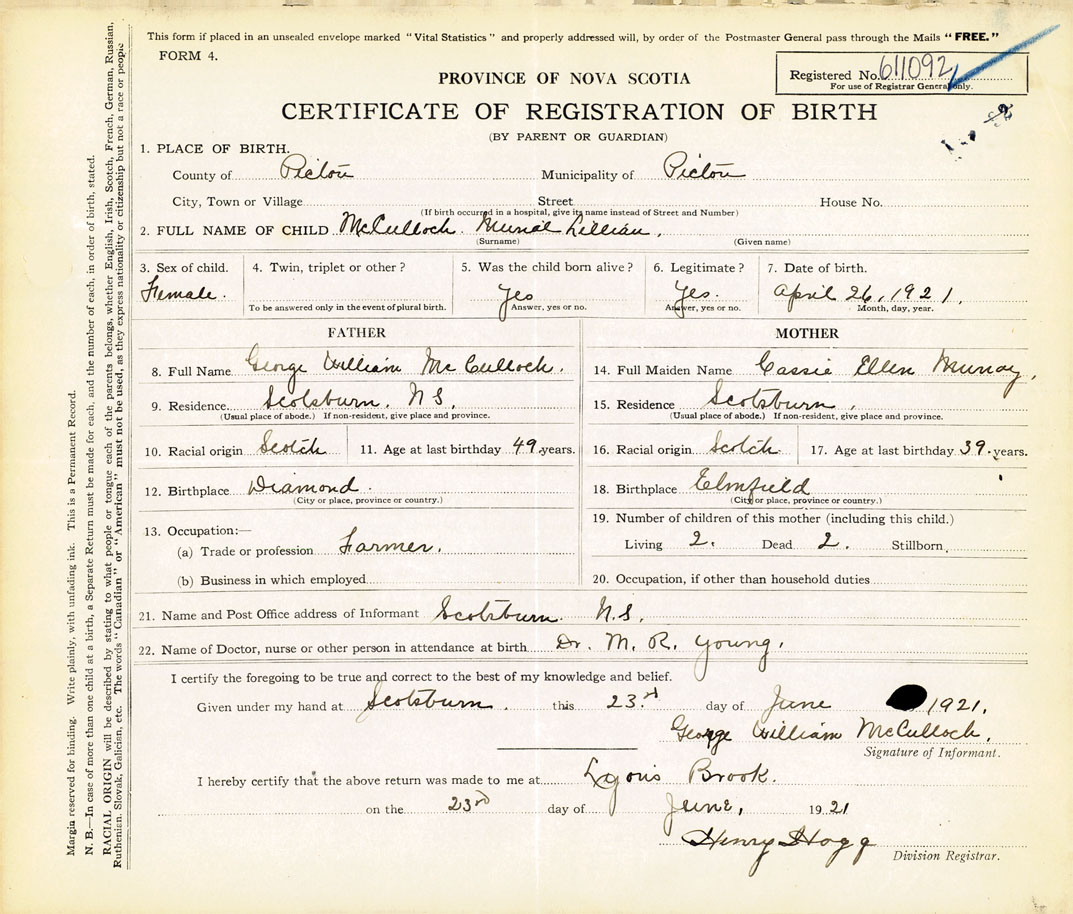 This form if placed in an unsealed envelope marked "Vital Statistics" and properly addressed will, by order of the Postmaster General pass through the Mails "FREE."
FORM 4.
Registered No. 611092
For use of Registrar General only.
PROVINCE OF NOVA SCOTIA
CERTIFICATE OF REGISTRATION OF BIRTH
(BY PARENT OR GUARDIAN)
1. PLACE OF BIRTH.
County of Pictou Municipality of Pictou
City, Town or Village Street House No.
(If birth occurred in a hospital, give its name instead of Street and Number)
2. FULL NAME OF CHILD McCulloch. Lillian.
(Surname) (Given name)
3. Sex of child. 4. Twin, triplet or other? 5. Was the child born alive? 6. Legitimate? 7. Date of birth.
Female. Yes Yes. April 26, 1921.
To be answered only in the event of plural birth. Answer, yes or no. Answer, yes or no. Month, day, year.
FATHER
8. Full Name George William McCulloch.
9. Residence Scotsburn. N.S.
(Usual place of abode.) If non-resident, give place and province.
10. Racial origin Scotch 11. Age at last birthday 49 years.
12. Birthplace Diamond.
(City or place, province or country.)
13. Occupation:—
(a) Trade or profession Farmer.
(b) Business in which employed
MOTHER
14. Full Maiden Name Cassie Ellen Murray.
15. Residence Scotsburn.
(Usual place of abode.) If non-resident, give place and province.
16. Racial origin Scotch 17. Age at last birthday 39. years.
18. Birthplace Elmfield
(City or place, province or country.)
19. Number of children of this mother (including this child.)
Living 2. Dead 2. Stillborn
20. Occupation, if other than household duties
21. Name and Post Office address of Informant Scotsburn. N.S.
22. Name of Doctor, nurse or other person in attendance at birth Dr. M. R. Young.
I certify the foregoing to be true and correct to the best of my knowledge and belief.
Given under my hand at Scotsburn. this 23rd day of June 1921.
George William McCulloch.
Signature of Informant.
I hereby certify that the above return was made to me at Lyons Brook.
on the 23rd day of June, 1921
Henry Hogg
Division Registrar.
Margin reserved for binding. Write plainly, with unfading ink. This is a Permanent Record.
N. B.—In case of more than one child at a birth, a Separate Return must be made for each, and the number of each, in order of birth, stated.
RACIAL ORIGIN will be described by stating to what people or tongue each of the parents belongs, whether English, Irish, Scotch, French, German, Russian,
Ruthenian, Slovak, Galician, etc. The words "Canadian" or "American" must not be used, as they express nationality or citizenship but not a race or people